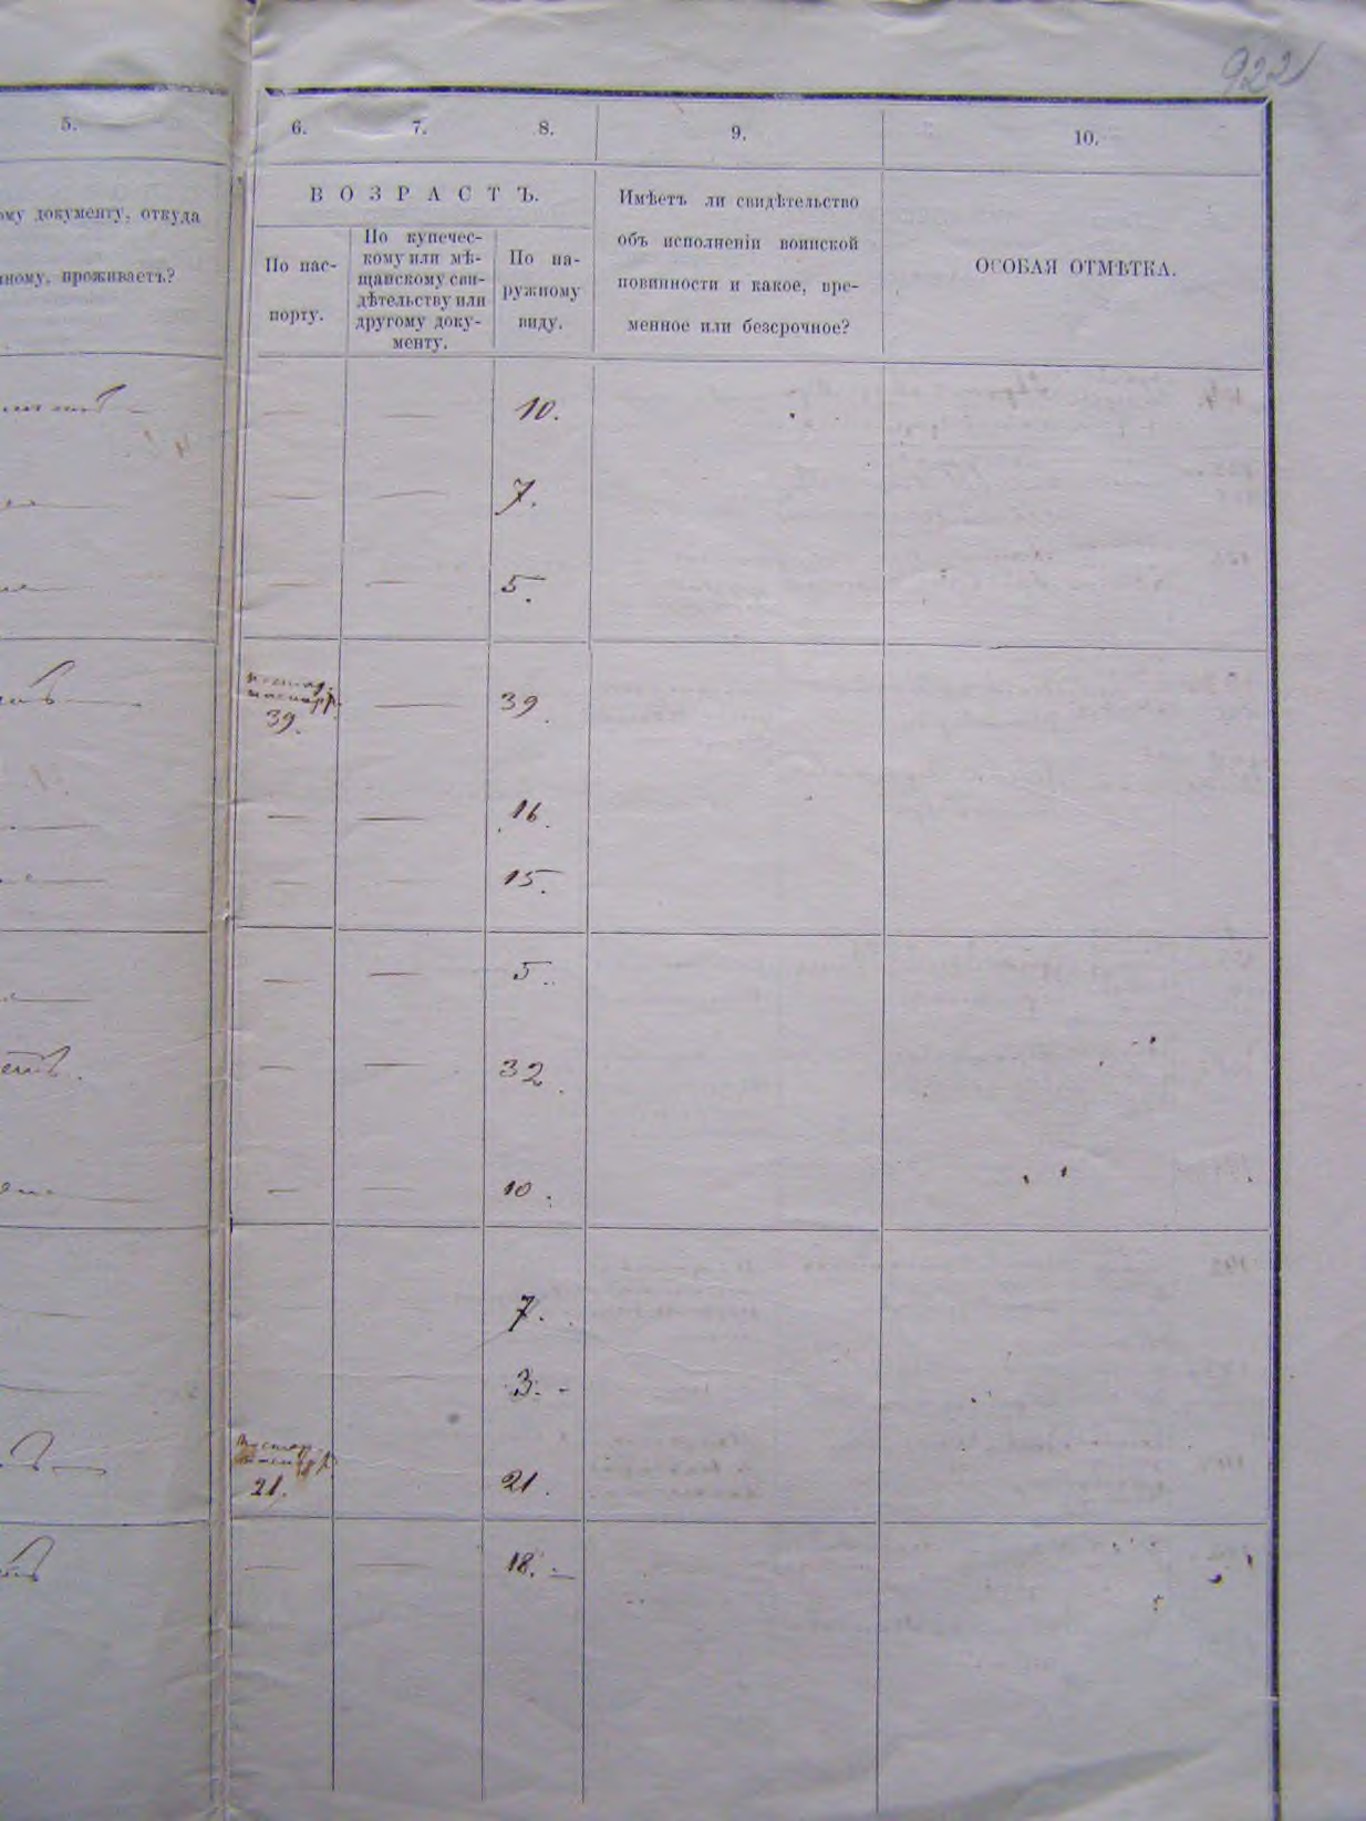 922
5.
6. 7. 8. 9. 10.
ому документу, откуда
нному, проживаетъ?
ВОЗРАСТЪ.
По пас-
порту.
По купечес-
кому или мѣ-
щанскому сви-
дѣтельству или
другому доку-
менту.
По на-
ружному
виду.
Имѣетъ ли свидѣтельство
объ исполненіи воинской
повинности и какое, вре-
менное или безсрочное?
ОСОБАЯ ОТМѢТКА.
— — 10.
— — 7.
— — 5.
39. — 39.
— — 16.
— — 15.
— — 5.
— — 32.
— — 10.
7.
3. -
21. 21.
— — 18. -